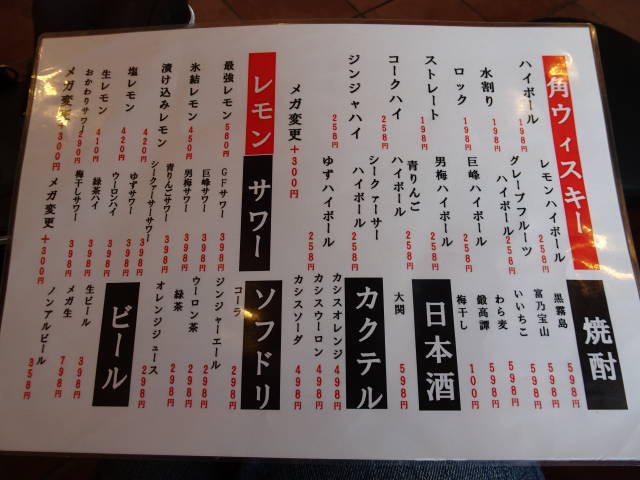 角ウィスキー
ハイボール 198円
水割り 198円
ロック 198円
ストレート 198円
コークハイ 258円
ジンジャハイ 258円
メガ変更 +300円
レモンハイボール 258円
グレープフルーツ
ハイボール 258円
巨峰ハイボール 258円
男梅ハイボール 258円
青りんご
ハイボール 258円
シークァーサー
ハイボール 258円
ゆずハイボール 258円
レモン
最強レモン 580円
氷結レモン 450円
漬け込みレモン 450円
塩レモン 420円
生レモン 410円
おかわりサワー 290円
メガ変更 +300円
サワー
GFサワー 398円
巨峰サワー 398円
男梅サワー 398円
青りんごサワー 398円
シークァーサーサワー 398円
ゆずサワー 398円
ウーロンハイ 398円
緑茶ハイ 398円
梅干しサワー 398円
メガ変更 +300円
焼酎
黒霧島 598円
富乃宝山 598円
いいちこ 598円
わら麦 598円
鍛高譚 598円
梅干し 100円
日本酒
大関 598円
カクテル
カシスオレンジ 498円
カシスウーロン 498円
カシスソーダ 498円
ソフドリ
コーラ 298円
ジンジャーエール 298円
ウーロン茶 298円
緑茶 298円
オレンジジュース 298円
ビール
生ビール 398円
メガ生 798円
ノンアルビール 358円